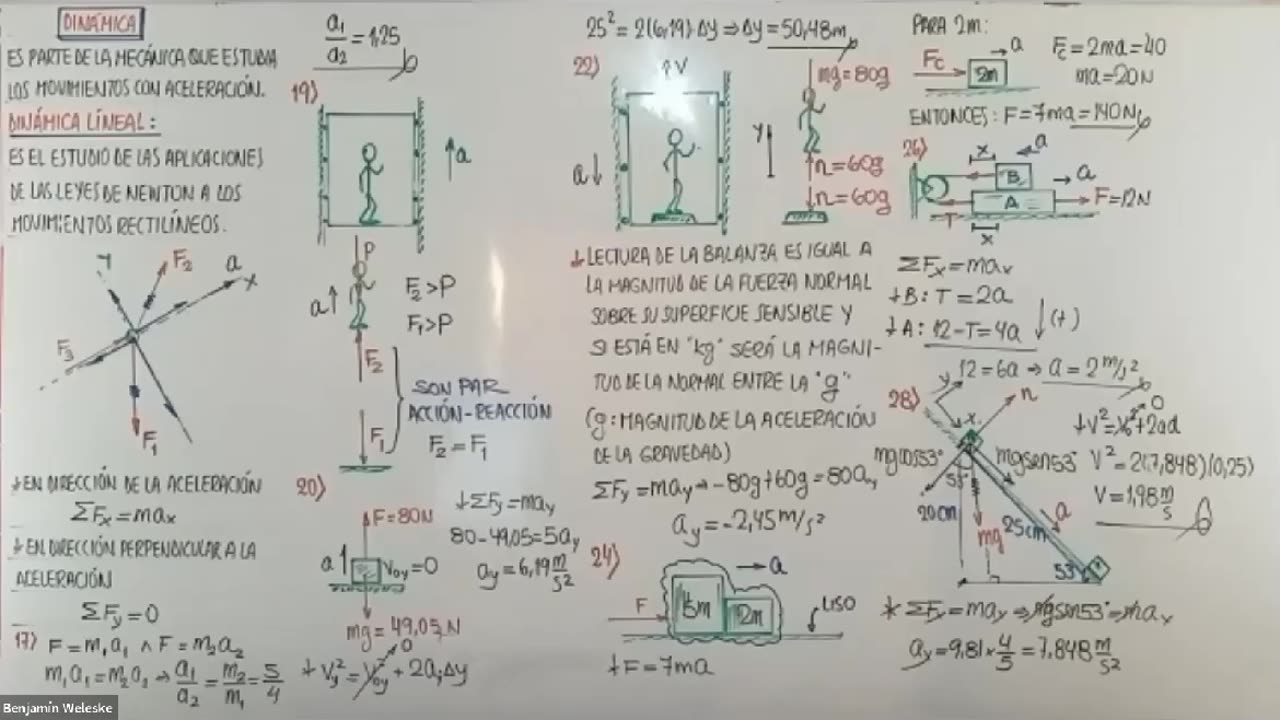 DINÁMICA
ES PARTE DE LA MECÁNICA QUE ESTUDIA
LOS MOVIMIENTOS CON ACELERACIÓN.
DINÁMICA LÍNEAL:
ES EL ESTUDIO DE LAS APLICACIONES
DE LAS LEYES DE NEWTON A LOS
MOVIMIENTOS RECTILÍNEOS.
Y
F₂
a
x
F₃
F₁
↓ EN DIRECCIÓN DE LA ACELERACIÓN
ΣFx = max
↓ EN DIRECCIÓN PERPENDICULAR A LA
ACELERACIÓN
ΣFy = 0
17) F = m₁a₁ ∧ F = m₂a₂
m₁a₁ = m₂a₂ → a₁/a₂ = m₂/m₁ = 5/4
a₁/a₂ = 1,25
19)
a
P
a
F₂ > P
F₁ > P
F₂
F₁
SON PAR
ACCIÓN-REACCIÓN
F₂ = F₁
20)
F = 80N
a
Voy = 0
mg = 49,05 N
↓ ΣFy = may
80 - 49,05 = 5ay
ay = 6,19 m/s²
↓ Vy² = Voy² + 2ayΔy
0
25² = 2(6,19) Δy ⇒ Δy = 50,48m
22)
V
a
mg = 80g
y
n = 60g
n = 60g
↓ LECTURA DE LA BALANZA ES IGUAL A
LA MAGNITUD DE LA FUERZA NORMAL
SOBRE SU SUPERFICIE SENSIBLE Y
SI ESTÁ EN "kg" SERÁ LA MAGNI-
TUD DE LA NORMAL ENTRE LA "g"
(g: MAGNITUD DE LA ACELERACIÓN
DE LA GRAVEDAD)
ΣFy = may → -80g + 60g = 80ay
ay = -2,45 m/s²
24)
a
F
5m
2m
LISO
↓ F = 7ma
PARA 2m:
Fc
a
2m
Fc = 2ma = 40
ma = 20N
ENTONCES: F = 7ma = 140N
26)
x
a
B
a
A
F = 12N
T
x
ΣFx = max
↓ B: T = 2a
↓ A: 12 - T = 4a
(+)
12 = 6a → a = 2 m/s²
28)
y
x
n
mgcos53°
mgsen53°
53°
20cm
mg
25cm
a
53°
0
↓ V² = V₀² + 2ad
V² = 2(7,848)(0,25)
V = 1,98 m/s
* ΣFx = max ⇒ mgsen53° = max
ax = 9,81 × 4/5 = 7,848 m/s²
Benjamín Weleske